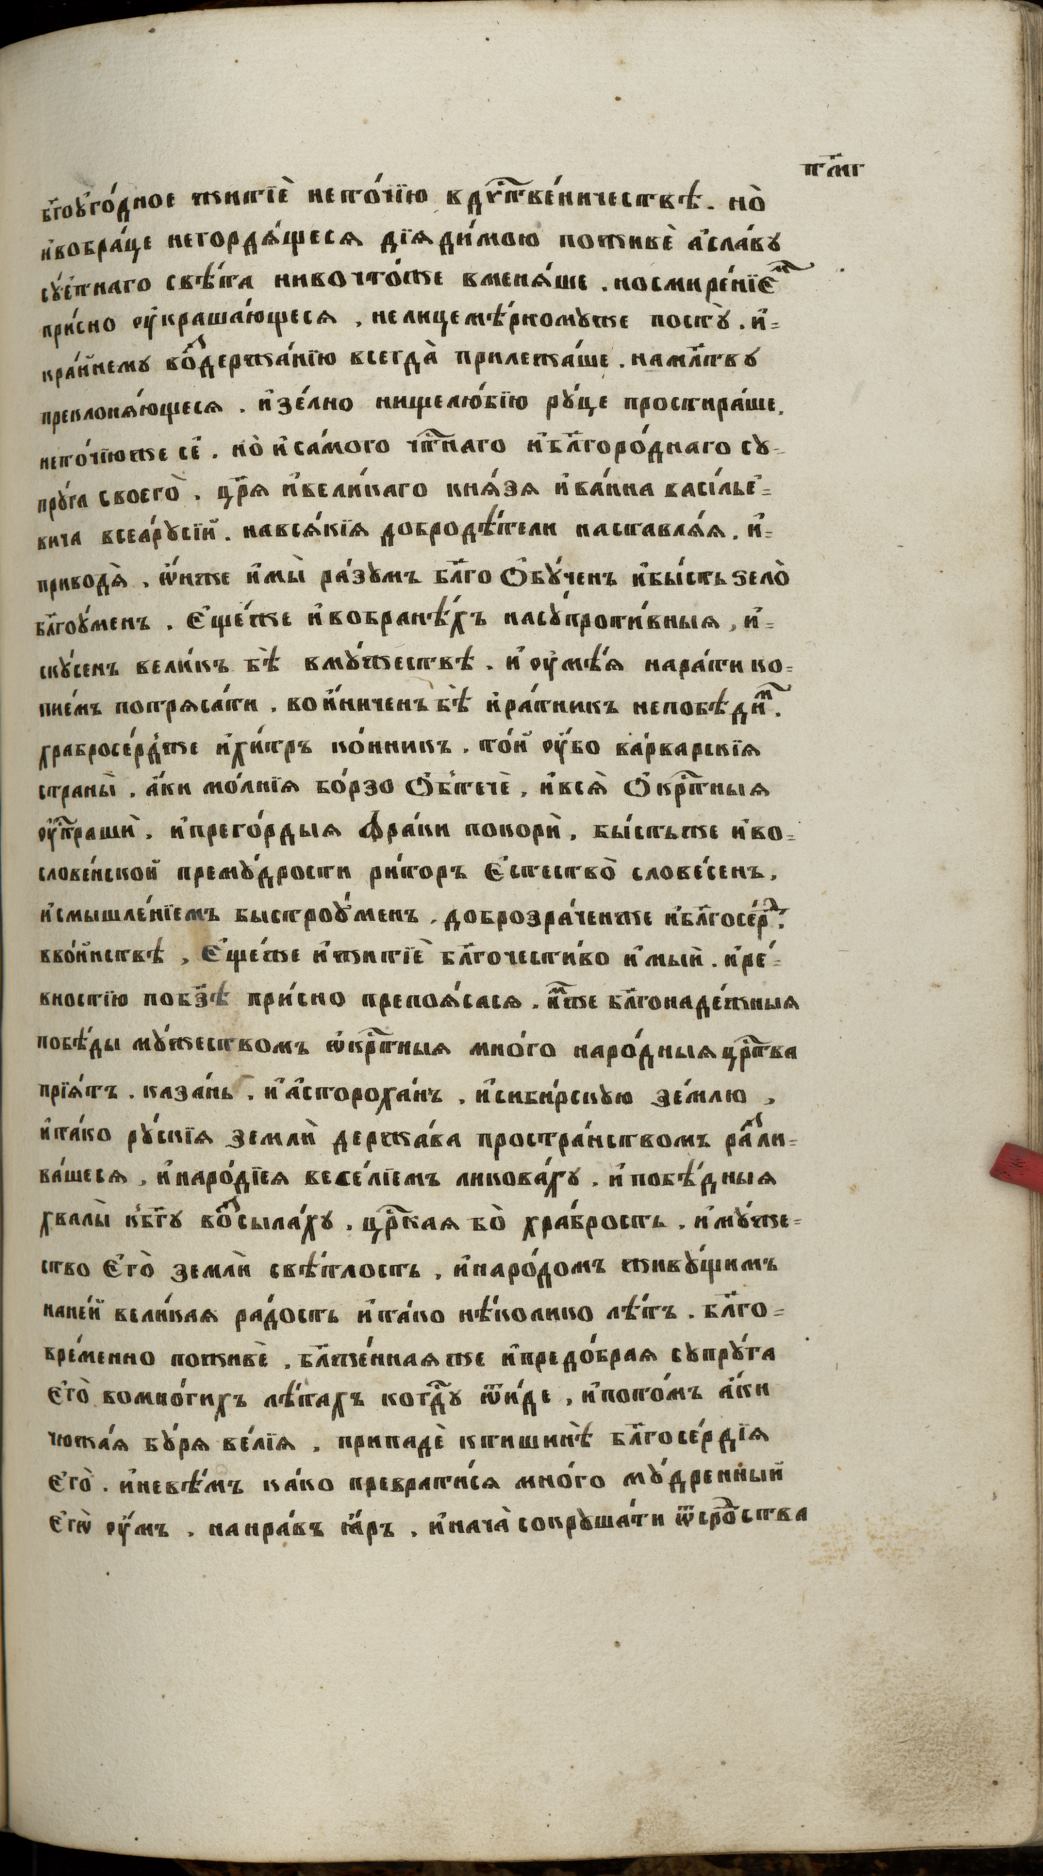 пл҃мг
бг҃оуго́дное житїѐ нето́чїю в дѵ́ⷭ҇твеничествѣ. но̀
и҆вобра́це негордя́щеся дїяди́мою поживѐ а҆сла́ву
сꙋ́етнаго свѣ́та нивочто́же вменя́ше. носмире́нїеⷨ҇
при́сно ѹ҆краша́ющеся, нелицемѣ́рномуже посту̀. и҆=
кра́йнему воⷥ҇держа́нїю всегда̀ прилежа́ше. намл҃тву
преклоня́ющеся. и҆зе́лно нищелю́бїю ру́це простира́ше.
нето́чїюже се҆. но̀ и҆ са́мого чⷭ҇тнаго и҆бл҃горо́днаго су=
пру́га своего̀. цр҃я и҆вели́каго кня́зя и҆ва́нна васі́лье=
вича всеа́русїй. нався́кїя добродѣ́тели наставля́я. и҆=
приводя̀, ѿни́же и҆мы̀ ра́зумъ бл҃го о҆бу́ченъ и҆бы́сть ѕело̀
бл҃гоу́менъ. е҆ще́же и҆вобранѣ́хъ насу́проти́вныя, и҆=
ску́сенъ вели́къ бѣ̀ вму́жествѣ. и҆ ѹ҆мѣ́я нара́ти ко=
пие́мъ потряса́ти. вои́ниченъ бѣ̀ и҆ра́тникъ непобѣди́ⷨ҇.
храбросе́рдже и҆хи́тръ ко́нникъ. то́й ѹ҆́бо ва́рварскїя
страны̀. а҆́ки мо́лнїя бо́рзо о҆бтечѐ, и҆вся̀ о҆крⷭ҇тныя
ѹ҆ⷭ҇трашѝ. и҆прего́рдыя ѳра́ки покорѝ. бы́стьже и҆во=
слове́нской прему́дрости ри́торъ е҆стество̀ слове́сенъ.
и҆смышле́нїемъ быстроу́менъ. доброзра́ченже и҆бл҃госе́рⷣ.
вво́йнствѣ, е҆ще́же и҆житїѐ бл҃гочести́во и҆мы̀й. и҆ре́=
вностїю побз҃ѣ при́сно препоя́сася. и҆ⷨже бл҃гонаде́жныя
побѣ́ды му́жеством ъ ѡ҆крⷭ҇тныя мно́го наро́дныя црⷭ҇тва
прїя́тъ. каза́нь. и҆ а҆сторохáнъ. и҆сиби́рскую зе́млю,
и҆та́ко ру́скїя землѝ держа́ва простра́нством ъ раⷥ҇ли=
ва́шеся, и҆наро́дїея весе́лїемъ ликова́ху. и҆побѣ́дныя
хвалы̀ кбг҃у воⷥ҇сыла́ху. црⷭ҇кая бо̀ хра́брость. и҆му́же=
ство е҆го̀ землѝ свѣ́тлость, и҆наро́домъ живу́щимъ
наней вели́кая ра́дость и҆та́ко нѣ́колико лѣ́тъ. бл҃го=
вре́менно поживѐ. бл҃же́ннаяже и҆предо́брая супру́га
е҆го̀ вомно́гихъ лѣ́тахъ когⷣу ѿи́де, и҆пото́мъ а҆́ки
чюжа́я бу́ря ве́лїя, припадѐ ктишинѣ̀ бл҃госе́рдїя
е҆го̀. и҆невѣ́мъ ка́ко преврати́ся мно́го му́дренный
е҆гѡ̀ ѹ҆́мъ. нанра́въ ꙗ҆́ръ. и҆нача̀ сокруша́ти ѿсро́ⷣства